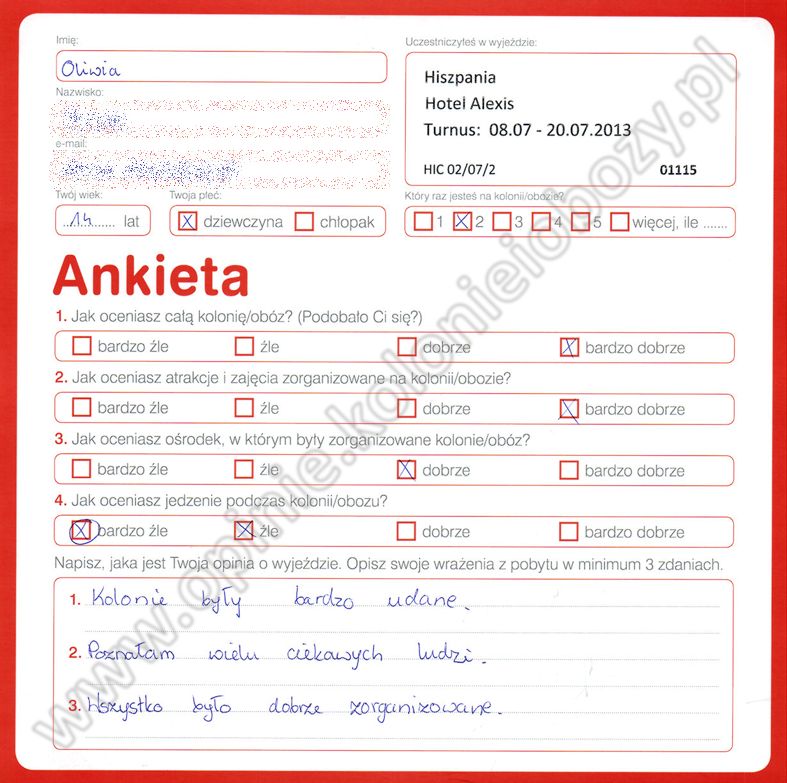 Imię:
Uczestniczyłeś w wyjeździe:
Oliwia
Hiszpania
Hotel Alexis
Turnus: 08.07 - 20.07.2013
HIC 02/07/2
01115
Nazwisko:
e-mail:
Twój wiek:
Twoja płeć:
Który raz jesteś na kolonii/obozie?
14 lat
dziewczyna chłopak
1 2 3 4 5 więcej, ile .......
Ankieta
1. Jak oceniasz całą kolonię/obóz? (Podobało Ci się?)
bardzo źle źle dobrze bardzo dobrze
2. Jak oceniasz atrakcje i zajęcia zorganizowane na kolonii/obozie?
bardzo źle źle dobrze bardzo dobrze
3. Jak oceniasz ośrodek, w którym były zorganizowane kolonie/obóz?
bardzo źle źle dobrze bardzo dobrze
4. Jak oceniasz jedzenie podczas kolonii/obozu?
bardzo źle źle dobrze bardzo dobrze
Napisz, jaka jest Twoja opinia o wyjeździe. Opisz swoje wrażenia z pobytu w minimum 3 zdaniach.
1. Kolonie były bardzo udane.
2. Poznałam wielu ciekawych ludzi.
3. Wszystko było dobrze zorganizowane.
www.opinie.kolonieiobozy.pl